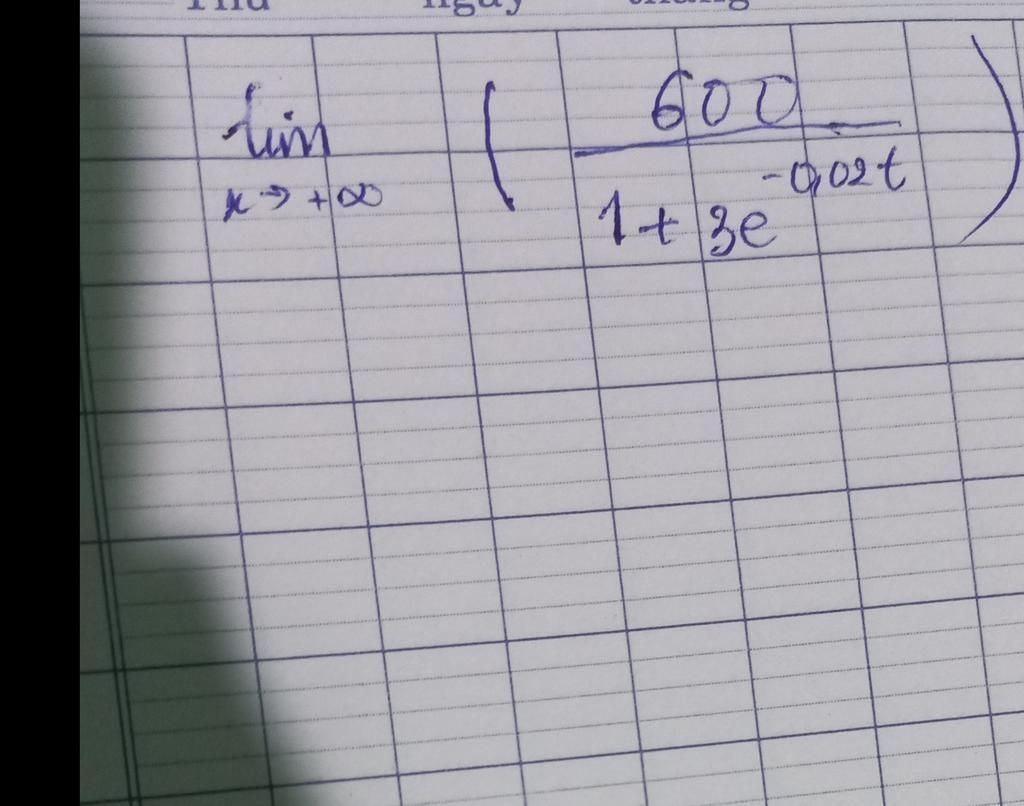 Thứ ngày tháng
lim ( 600 / (1 + 3e^{-0,02t}) )
x → +∞